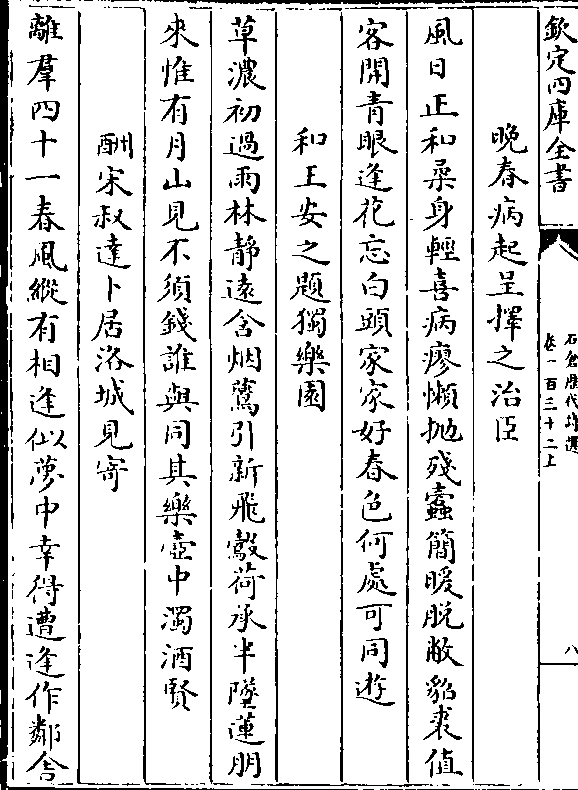 欽定四庫全書
石倉歷代詩選
卷一百三十二上
八
晚春病起呈擇之治臣
風日正和柔身輕喜病瘳懶拋殘蠹簡暖脫敝貂裘值
客開青眼逢花忘白頭家家好春色何處可同遊
和王安之題獨樂園
草濃初過雨林靜遠含烟鶯引新飛鷇荷承半墜蓮朋
來惟有月山見不須錢誰與同其樂壺中濁酒賢
酬宋叔達卜居洛城見寄
離羣四十一春風縱有相逢似夢中幸得遭逢作鄰舍